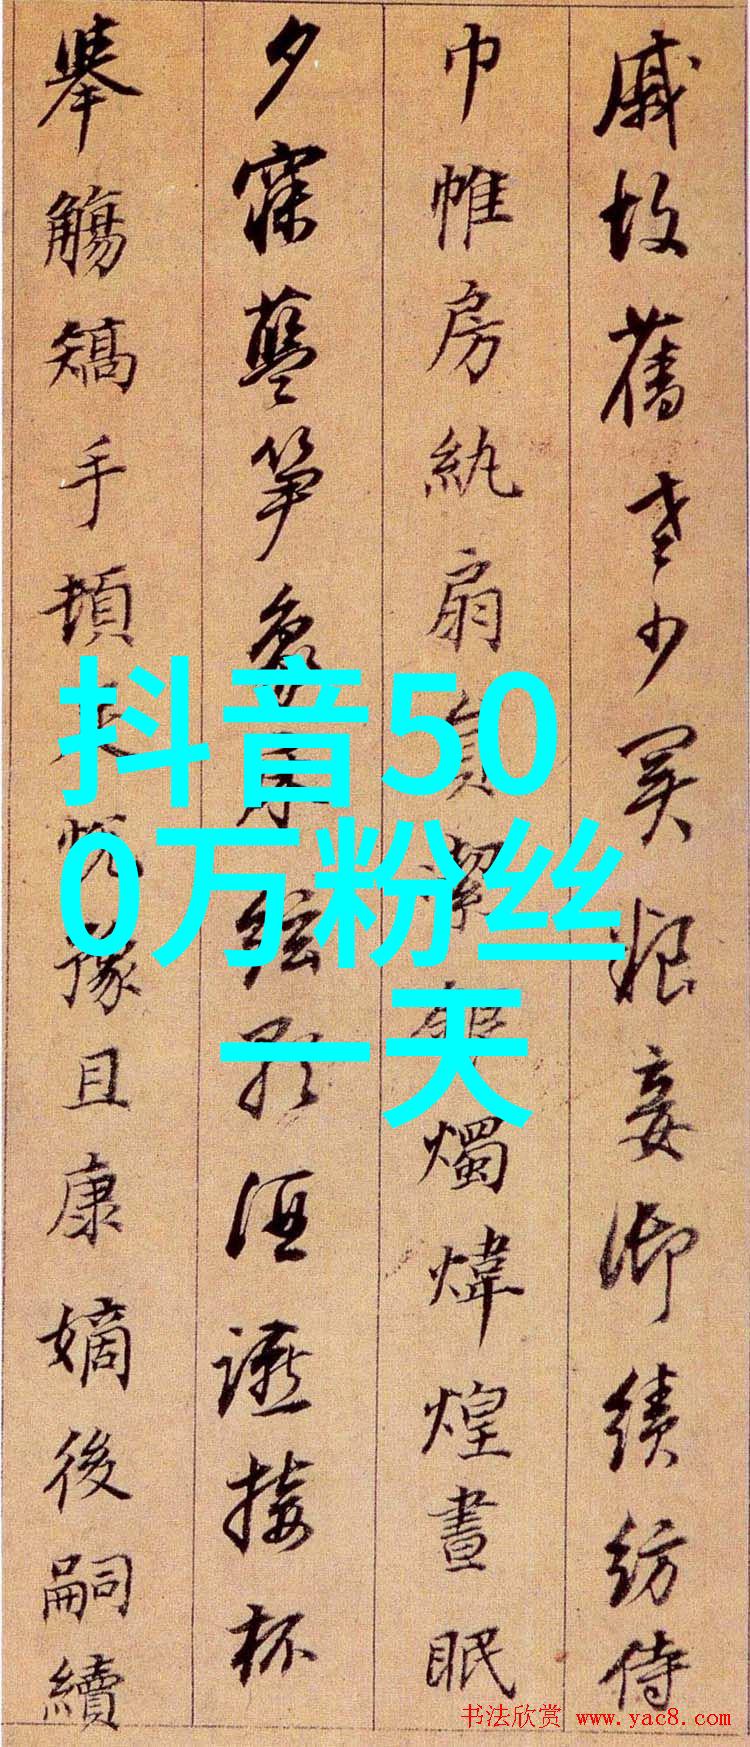 戚故舊老少異粮妾御績紡侍
巾帷房紈扇員潔銀燭煒煌晝眠
夕寐藍筍象床絃歌酒讌接杯
舉觴矯手頓足悅豫且康嫡後嗣續
抖音50
0万粉丝
一天
书法欣赏 www.yac8.com